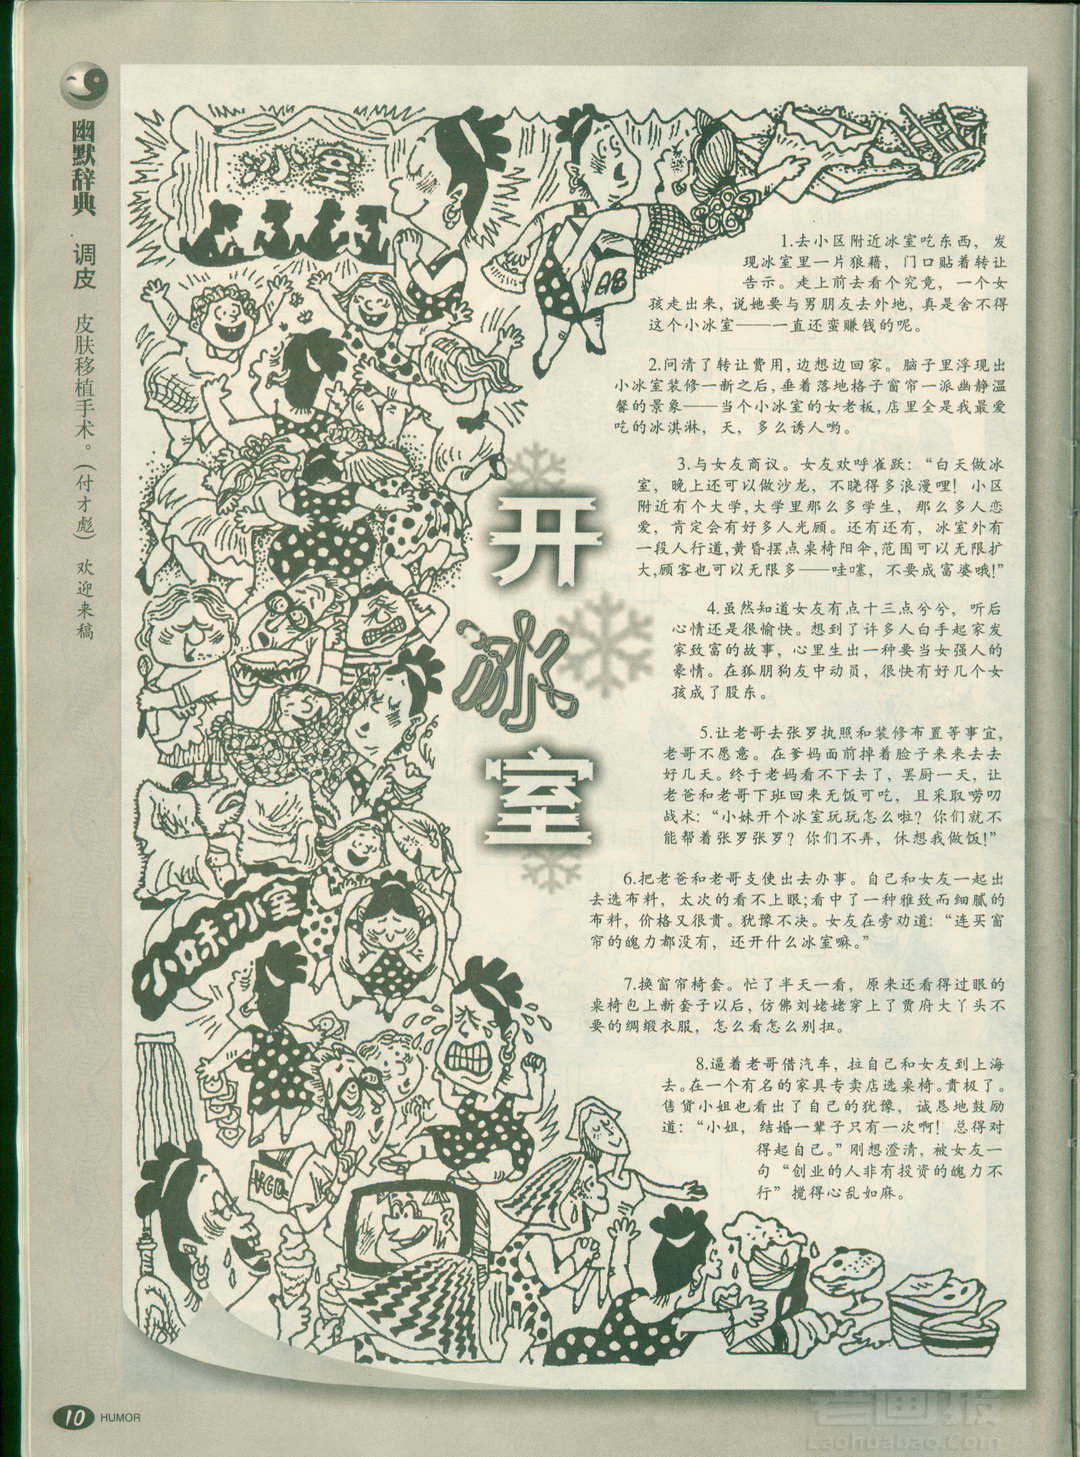 幽默辞典 调皮 皮肤移植手术。(付才彪) 欢迎来稿
冰室
AB
开
冰
室
1.去小区附近冰室吃东西，发
现冰室里一片狼藉，门口贴着转让
告示。走上前去看个究竟，一个女
孩走出来，说她要与男朋友去外地，真是舍不得
这个小冰室——一直还蛮赚钱的呢。
2.问清了转让费用，边想边回家。脑子里浮现出
小冰室装修一新之后，垂着落地格子窗帘一派幽静温
馨的景象——当个小冰室的女老板，店里全是我最爱
吃的冰淇淋，天，多么诱人哟。
3.与女友商议。女友欢呼雀跃：“白天做冰
室，晚上还可以做沙龙，不晓得多浪漫哩！小区
附近有个大学，大学里那么多学生，那么多人恋
爱，肯定会有好多人光顾。还有还有，冰室外有
一段人行道，黄昏摆点桌椅阳伞，范围可以无限扩
大，顾客也可以无限多——哇噻，不要成富婆哦！”
4.虽然知道女友有点十三点兮兮，听后
心情还是很愉快。想到了许多人白手起家发
家致富的故事，心里生出一种要当女强人的
豪情。在狐朋狗友中动员，很快有好几个女
孩成了股东。
5.让老哥去张罗执照和装修布置等事宜，
老哥不愿意。在爹妈面前掉着脸子来来去去
好几天。终于老妈看不下去了，罢厨一天，让
老爸和老哥下班回来无饭可吃，且采取唠叨
战术：“小妹开个冰室玩玩怎么啦？你们就不
能帮着张罗张罗？你们不弄，休想我做饭！”
6.把老爸和老哥支使出去办事。自己和女友一起出
去选布料，太次的看不上眼；看中了一种雅致而细腻的
布料，价格又很贵。犹豫不决。女友在旁劝道：“连买窗
帘的魄力都没有，还开什么冰室嘛。”
7.换窗帘椅套。忙了半天一看，原来还看得过眼的
桌椅包上新套子以后，仿佛刘姥姥穿上了贾府大丫头不
要的绸缎衣服，怎么看怎么别扭。
8.逼着老哥借汽车，拉自己和女友到上海
去。在一个有名的家具专卖店选桌椅。贵极了。
售货小姐也看出了自己的犹豫，诚恳地鼓励
道：“小姐，结婚一辈子只有一次啊！总得对
得起自己。”刚想澄清，被女友一
句“创业的人非有投资的魄力不
行”搅得心乱如麻。
小妹冰室
VCD
10 HUMOR
老画报
Laohuabao.Com